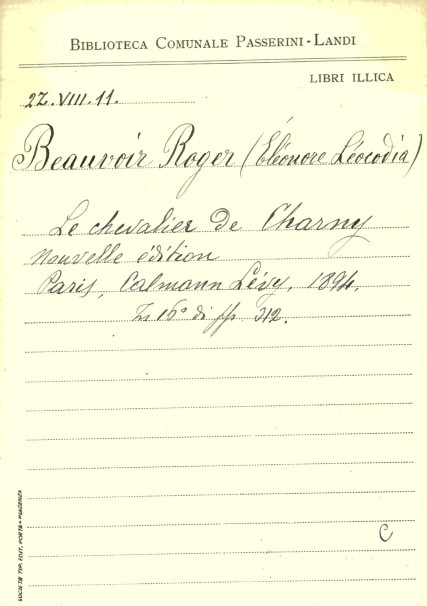 BIBLIOTECA COMUNALE PASSERINI-LANDI
LIBRI ILLICA
2Z.VIII.11.
Beauvoir Roger (Eléonore Léocodia)
Le chevalier de Charny
Nouvelle édition
Paris, Calmann Lévy, 1894.
In 16° di pp 312.
C
SOCIETÀ TIP. EDIT. PORTA - PIACENZA